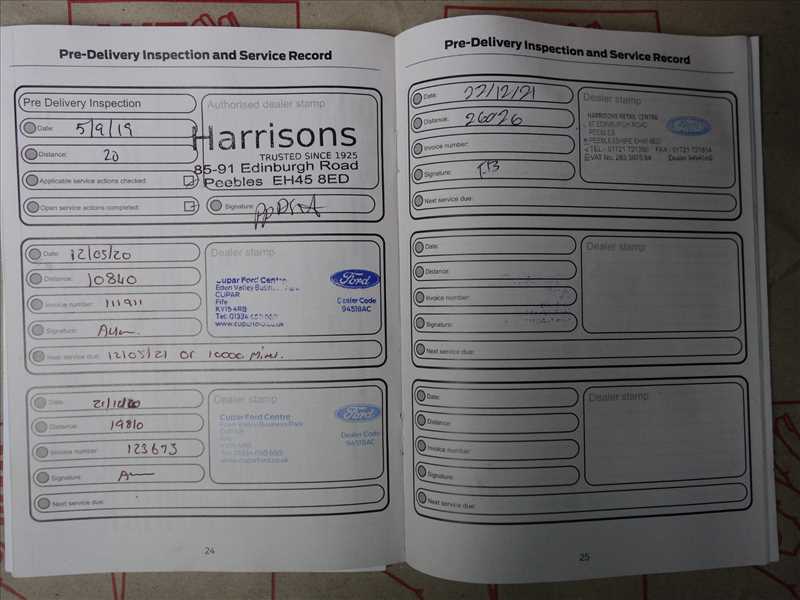 Pre-Delivery Inspection and Service Record
Pre Delivery Inspection
Authorised dealer stamp
Date: 5/9/19
Distance: 20
Harrisons
TRUSTED SINCE 1925
85-91 Edinburgh Road
Peebles EH45 8ED
Applicable service actions checked:
Open service actions completed:
Signature:
Date: 12/03/20
Distance: 10840
Invoice number: 111911
Signature:
Next service due: 12/03/21 or 10000 Miles.
Dealer stamp
Cupar Ford Centre
Eden Valley Business Park
CUPAR
Fife
KY15 4RB
Tel: 01334
www.cuparford.co.uk
Ford
Dealer Code
94518AC
Date:
Distance: 19810
Invoice number: 123673
Signature:
Next service due:
Dealer stamp
Cupar Ford Centre
Eden Valley Business Park
CUPAR
Fife
www.cuparford.co.uk
Ford
Dealer Code
94518AC
24
Pre-Delivery Inspection and Service Record
Date: 22/12/21
Distance: 26026
Invoice number:
Signature:
Next service due:
Dealer stamp
HARRISONS RETAIL CENTRE
EDINBURGH ROAD
PEEBLES
PEEBLESSHIRE EH45 8ED
Ford
Date:
Distance:
Invoice number:
Signature:
Next service due:
Dealer stamp
Date:
Distance:
Invoice number:
Signature:
Next service due:
Dealer stamp
25